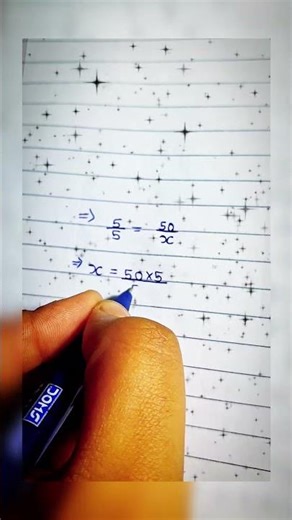 ⇒ 5/5 = 50/x
⇒ x = 50×5/
DOMS